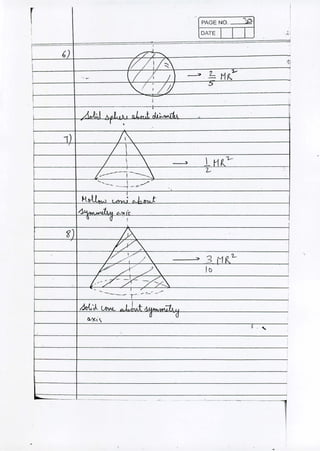 PAGE NO.
DATE
6)
→ 2/5 MR²
Solid sphere about diameter
7)
→ 1/2 MR²
Hollow cone about
symmetry axis
8)
→ 3/10 MR²
Solid cone about symmetry
axis